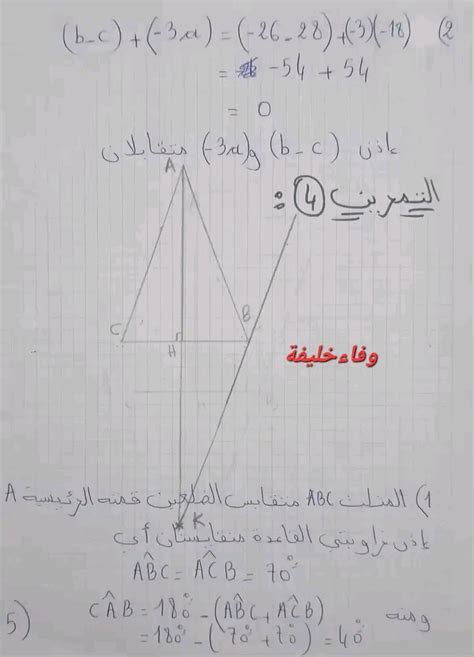 2) (b-c)+(-3a)=(-26-28)+(-3)(-18)
= -54+54
= 0
إذن (b-c) و(-3a) متقابلان
التمرين 4:
A
C
H
B
وفاء خليفة
K
1) المثلث ABC متقايس الضلعين قمته الرئيسية A
إذن زاويتي القاعدة متقايستان أي
AB̂C=AĈB=70°
ومنه CÂB=180°-(AB̂C+AĈB)
5) =180°-(70°+70°)=40°